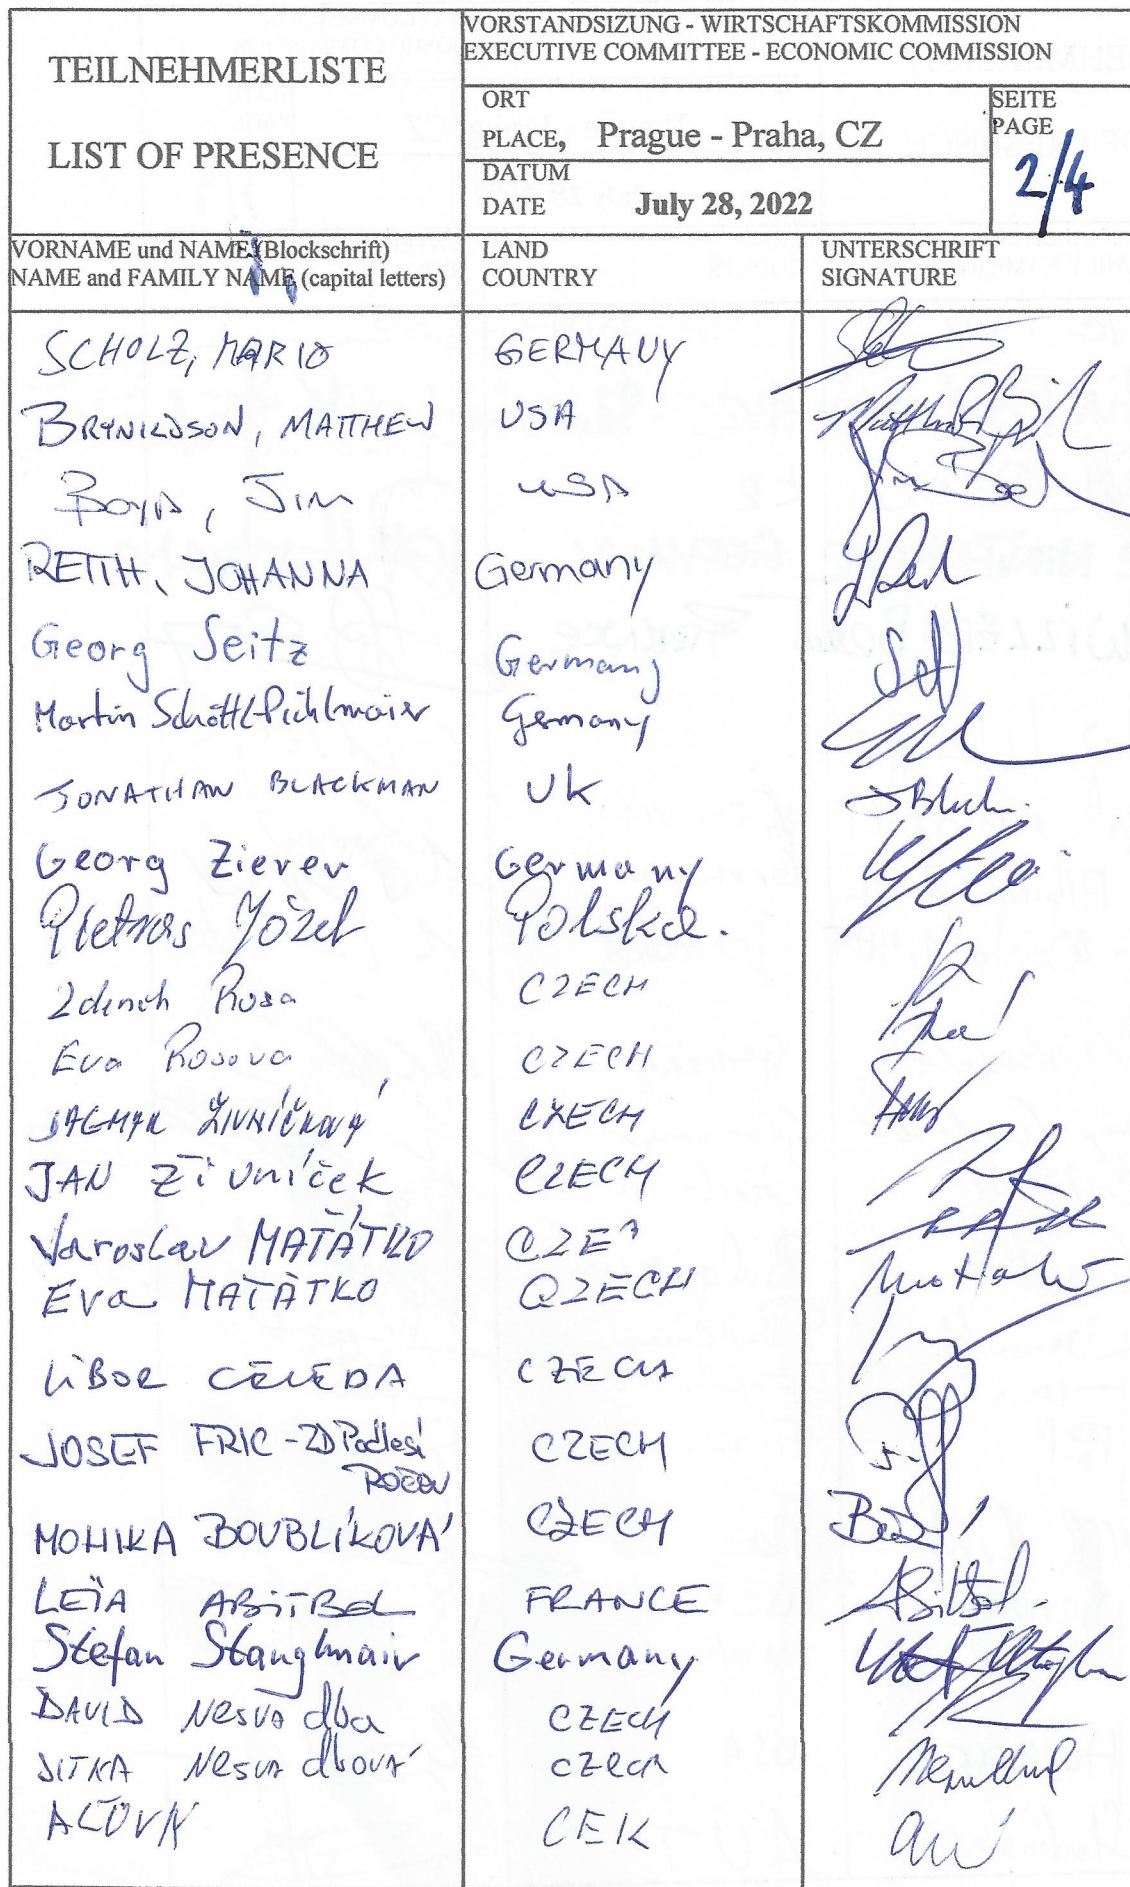 TEILNEHMERLISTE
LIST OF PRESENCE
VORSTANDSIZUNG - WIRTSCHAFTSKOMMISSION
EXECUTIVE COMMITTEE - ECONOMIC COMMISSION
ORT
PLACE, Prague - Praha, CZ
SEITE
PAGE
2/4
DATUM
DATE July 28, 2022
VORNAME und NAME (Blockschrift)
NAME and FAMILY NAME (capital letters)
LAND
COUNTRY
UNTERSCHRIFT
SIGNATURE
SCHOLZ, MARIO GERMANY
BRYNILDSON, MATTHEW USA
BOYD, JIM USA
REITH, JOHANNA Germany
Georg Seitz Germany
Martin Schöttl-Pichlmaier Germany
JONATHAN BLACKMAN UK
Georg Zierer Germany
Pietras Józef Polska.
Zdeněk Rosa CZECH
Eva Rosova CZECH
DAGMAR ŽIVNÍČKOVÁ CZECH
JAN Živníček CZECH
Jaroslav MAŤÁTKO CZE
Eva MAŤÁTKO CZECH
LIBOR CELEDA CZECH
JOSEF FRIC - ZD Podlesí CZECH
ROČOV
MONIKA BOUBLÍKOVÁ CZECH
LEÏA ABITBOL FRANCE
Stefan Stanglmair Germany
DAVID Nesvadba CZECH
JITKA Nesvadbová CZECH
CEK